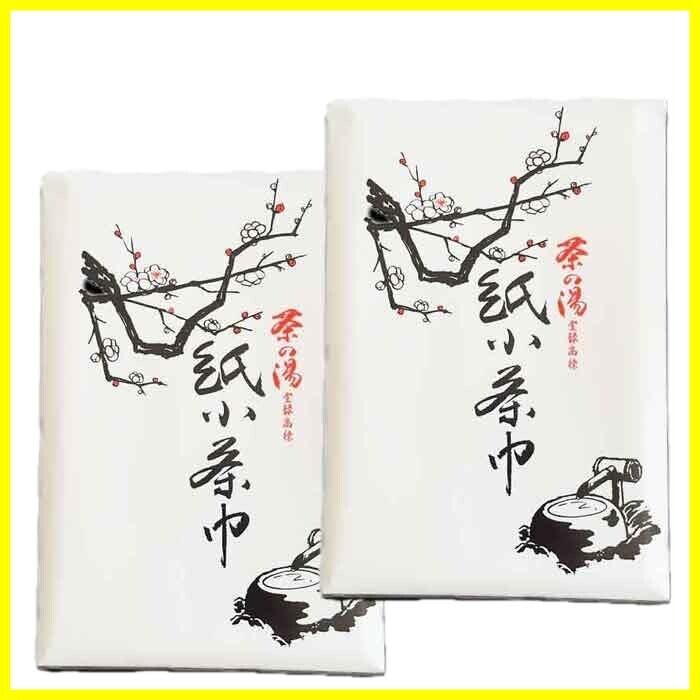 茶の湯
登録商標
紙小茶巾
茶の湯
登録商標
紙小茶巾